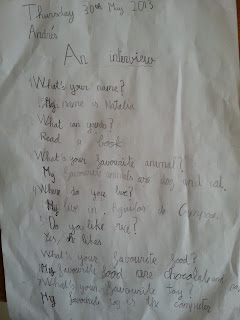 Thursday 30th May 2013
Andrés
An interview
What's your name?
My name is Natalia
What can you do?
Read a book
What's your favourite animal?
My favourite animals are dog and cat.
Where do you live?
live in Aguilar de Campoo
Do you like rice?
Yes,
What's your favourite food?
My favourite food are chocolate and
What's your favourite toy?
My favourite toy is the computer